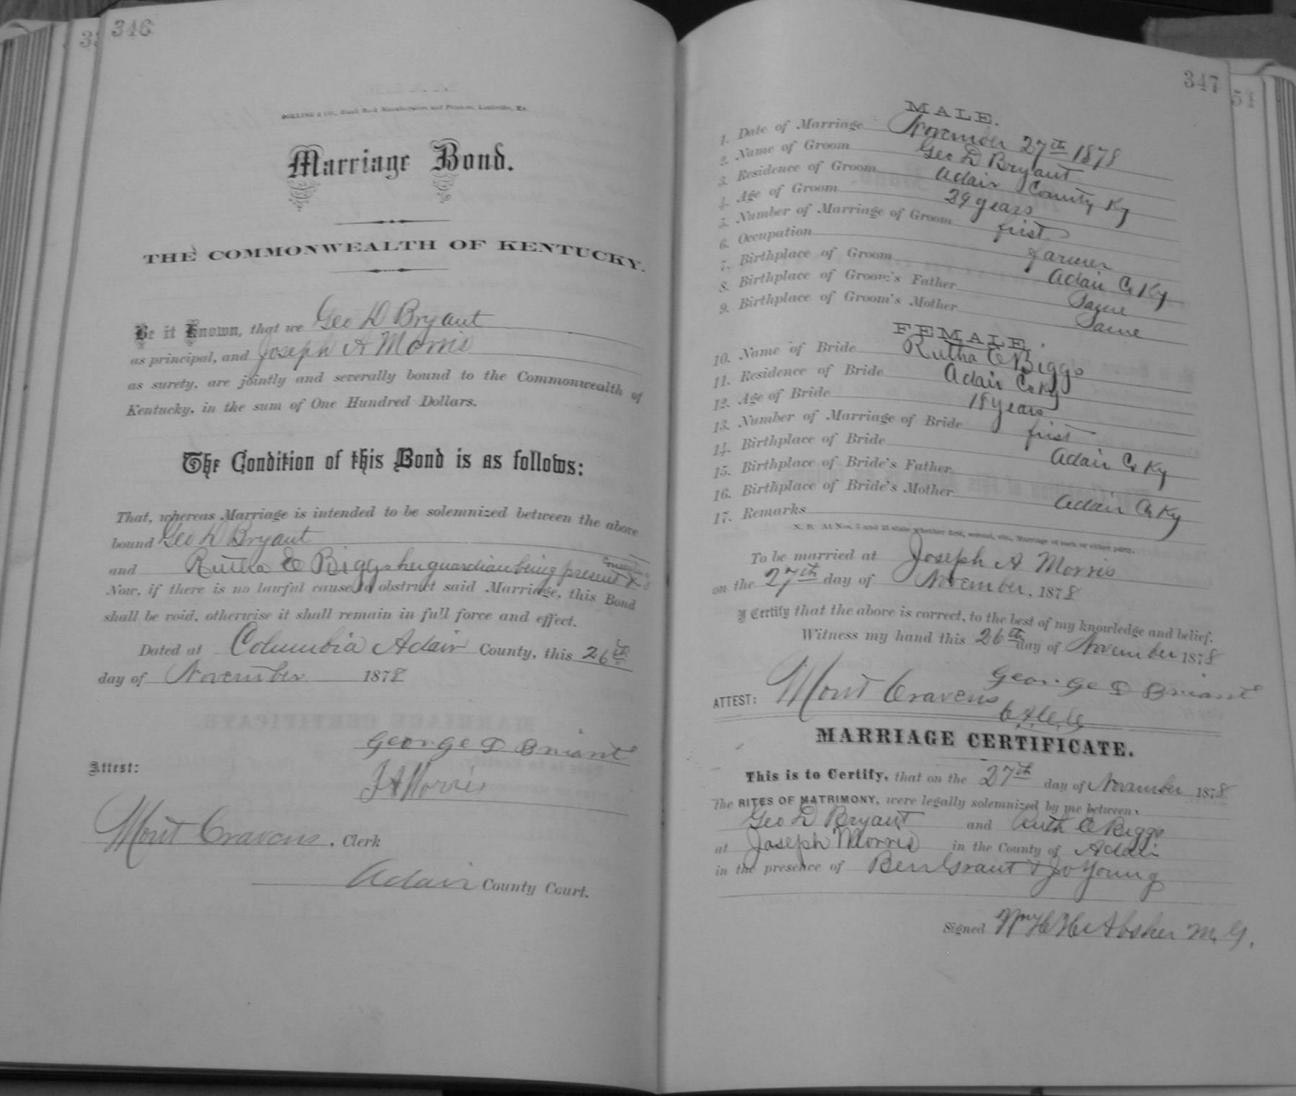 346
Marriage Bond.
THE COMMONWEALTH OF KENTUCKY.
Be it Known, that we Geo D Bryant
as principal, and Joseph A Morris
as surety, are jointly and severally bound to the Commonwealth of
Kentucky, in the sum of One Hundred Dollars.
The Condition of this Bond is as follows:
That, whereas Marriage is intended to be solemnized between the above
bound Geo D Bryant
and Rutha E Biggs her guardian being present &
Now, if there is no lawful cause to obstruct said Marriage, this Bond
shall be void, otherwise it shall remain in full force and effect.
Dated at Columbia Adair County, this 26th
day of November 1878
George D Briant
Attest: J A Morris
Mont Cravens, Clerk
Adair County Court.
347
51
MALE.
1. Date of Marriage November 27th 1878
2. Name of Groom Geo D Bryant
3. Residence of Groom Adair County Ky
4. Age of Groom 29 years
5. Number of Marriage of Groom first
6. Occupation farmer
7. Birthplace of Groom Adair C Ky
8. Birthplace of Groom's Father Same
9. Birthplace of Groom's Mother Same
FEMALE.
10. Name of Bride Rutha E Biggs
11. Residence of Bride Adair C Ky
12. Age of Bride 18 years
13. Number of Marriage of Bride first
14. Birthplace of Bride Adair C Ky
15. Birthplace of Bride's Father
16. Birthplace of Bride's Mother Adair C Ky
17. Remarks
To be married at Joseph A Morris
on the 27th day of November, 1878
I Certify that the above is correct, to the best of my knowledge and belief.
Witness my hand this 26th day of November 1878
George D Briant
ATTEST: Mont Cravens
MARRIAGE CERTIFICATE.
This is to Certify, that on the 27th day of November 1878
the RITES OF MATRIMONY, were legally solemnized by me between
Geo D Bryant and Ruth E Biggs
at Joseph Morris in the County of Adair
in the presence of Ben Grant & Jo Young
Signed Wm H H Absher M. G.